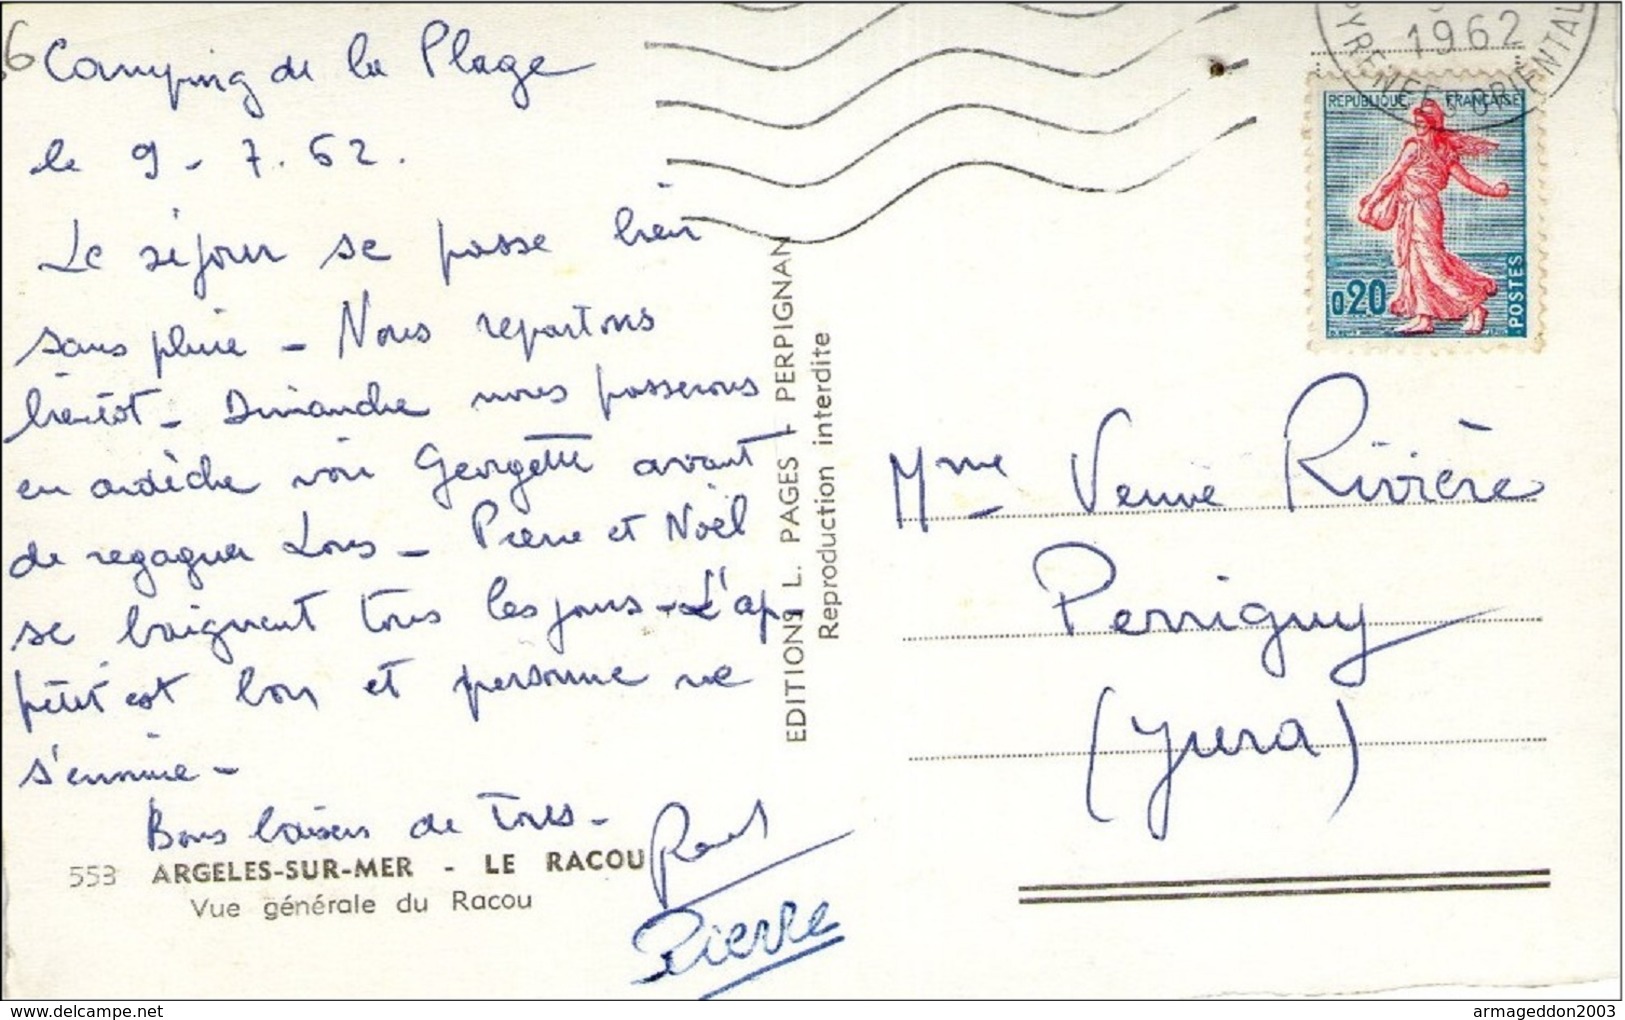 6
Camping de la Plage
le 9 - 7. 62.
Le séjour se passe bien
sans pluie - Nous repartons
bientôt - Dimanche nous passerons
en ardèche voir Georgette avant
de regagner Lons - Pierre et Noël
se baignent tous les jours - L'ap
pétit est bon et personne ne
s'ennuie -
Bons baisers de Tous -
Pierre
553 ARGELES-SUR-MER - LE RACOU
Vue générale du Racou
EDITIONS L. PAGES - PERPIGNAN
Reproduction interdite
1962
PYRENEES-ORIENTAL
REPUBLIQUE FRANÇAISE
0,20
POSTES
Mme Veuve Rivière
Perrigny
(Jura)
Delcampe.net
armageddon2003